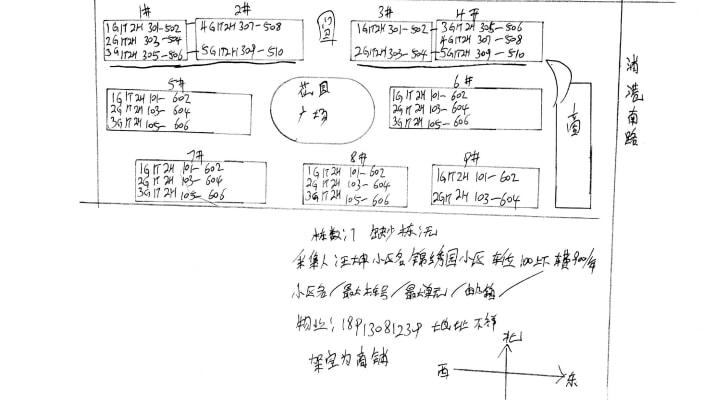 1#
2#
3#
4#
1G1T2H 301-502
2G1T2H 303-504
3G1T2H 305-506
4G1T2H 307-508
5G1T2H 309-510
1G1T2H 301-502
2G1T2H 303-504
3G1T2H 305-506
4G1T2H 307-508
5G1T2H 309-510
浦港南路
5#
1G1T2H 101-602
2G1T2H 103-604
3G1T2H 105-606
花园
广场
6#
1G1T2H 101-602
2G1T2H 103-604
3G1T2H 105-606
商
7#
1G1T2H 101-602
2G1T2H 103-604
3G1T2H 105-606
8#
1G1T2H 101-602
2G1T2H 103-604
3G1T2H 105-606
9#
1G1T2H 101-602
2G1T2H 103-604
栋数:9 缺少栋:无
采集人:汪坤 小区名 锦绣园小区 车位 100上下 车费 900/年
小区名/最大栋号/最大单元/
物业:18913081239 地址 不详
架空为商铺
北
西
东